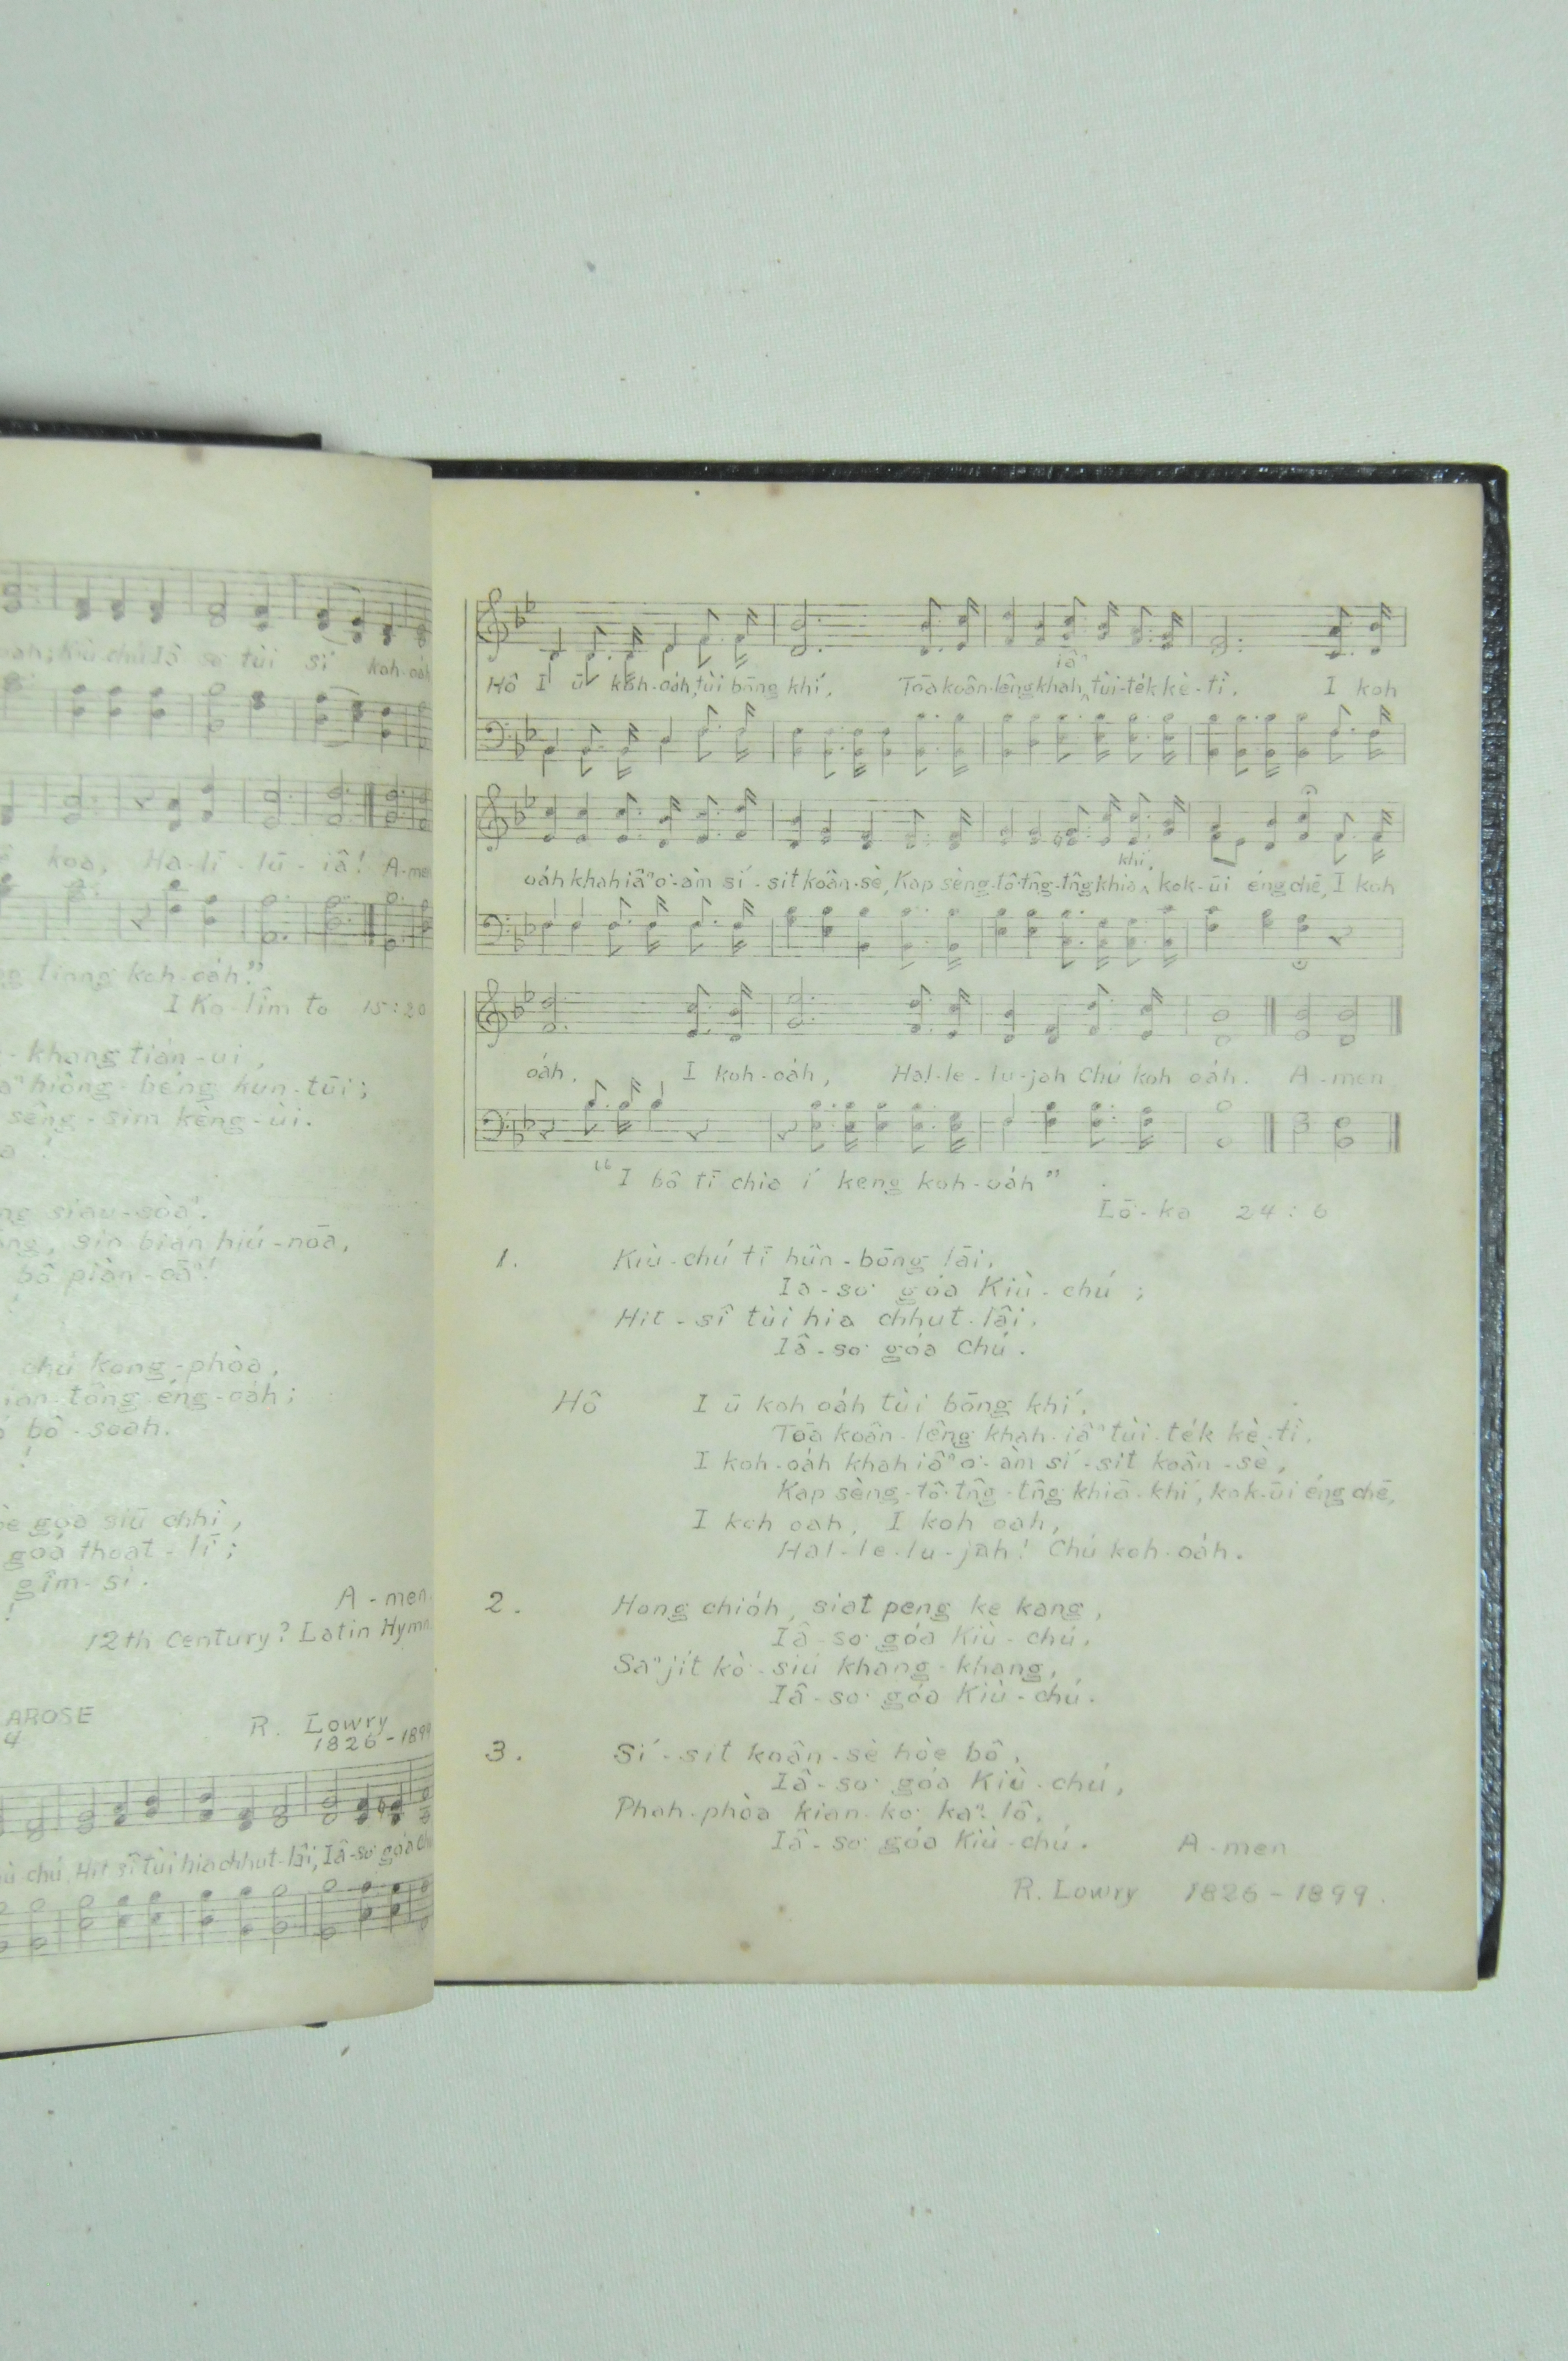 koh-oáh
koa, Ha-lī-lū-iâ! A-me
liong koh-oáh”
I Ko-lîm-to 15:20
khang tián-ui,
hiông-béng kun-tūi;
sêng-sim kèng-ùi.
siau-sòaⁿ.
sin bián hiú-nōa,
bô piàn-oāⁿ!
chú kong-phòa,
tông éng-oáh;
bô-soah.
góa siū chhì,
góa thoat-lī;
gîm-si.
A-men.
12th Century? Latin Hymn
AROSE
R. Lowry
1826-1899
chú Hit sî tùi hia chhut-lâi, Iâ-so͘ góa Chú
Hô I ū koh-oáh, tùi bōng khí, Tōa koân-lêng khah iâⁿ tùi-té̍k kè-tì. I koh
oáh khah iâⁿ o͘-àm sí-sit koân-sè, Kap sèng-tô͘ tn̂g-tn̂g khiā khí, kok-ūi éng chē, I koh
oáh. I koh-oáh, Hal-le-lu-jah Chú koh oáh. A-men
“I bô tī chia í keng koh-oáh”
Lō͘-ka 24:6
1. Kiù-chú tī hûn-bōng lāi,
Ia-so͘ góa Kiù-chú;
Hit-sî tùi hia chhut-lâi,
Iâ-so͘ góa Chú.
Hô I ū koh oáh tùi bōng khí,
Tōa koân-lêng khah-iâⁿ tùi-té̍k kè-tì.
I koh-oáh khah iâⁿ o͘-àm sí-sit koân-sè,
Kap sèng-tô͘ tn̂g-tn̂g khiā-khí, kok-ūi éng chē,
I koh oah, I koh oah,
Hal-le-lu-jah! Chú koh-oáh.
2. Hong chióh, siat peng ke kang,
Iâ-so͘ góa Kiù-chú,
Saⁿ ji̍t kò͘-siú khang-khang,
Iâ-so͘ góa Kiù-chú.
3. Sí-sit koân-sè hòe bô,
Iâ-so͘ góa Kiù-chú,
Phah-phòa kian-kò͘ kaⁿ-lô,
Iâ-so͘ góa Kiù-chú. A-men
R. Lowry 1826-1899.